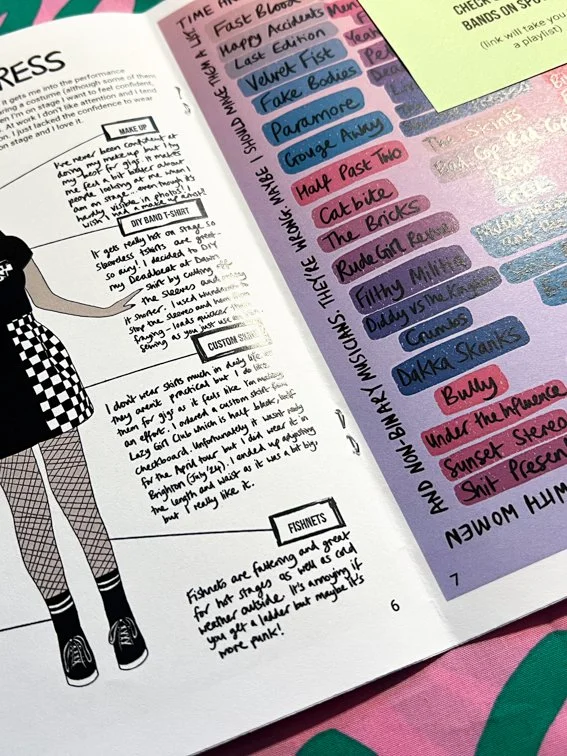 RESS
it gets me into the performance
ring a costume (although some of them
en I'm on stage I want to feel confident,
. At work I don't like attention and I tend
on. I just lacked the confidence to wear
on stage and I love it.
MAKE UP
I've never been confident at
doing my makeup but I try
my best for gigs. It makes
me feel a bit better about
people looking at me when I
am on stage... even though it's
hardly visible in photos! I
wish I had a make up artist!
DIY BAND T-SHIRT
It gets really hot on stage so
sleeveless tshirts are great -
so airy! I decided to DIY
my Deadbeat at Dawn
shirt by cutting off
the sleeves and making
it shorter. I used wundaweb to
stop the sleeves and hem from
fraying - loads quicker than
sewing as you just use an
CUSTOM SKIRT
I don't wear skirts much in daily life as
they aren't practical but I do like
them for gigs as it feels like I'm making
an effort. I ordered a custom skirt from
Lazy Girl Club which is half black, half
checkboard. Unfortunately it wasn't ready
for the April tour but I did wear it in
Brighton (July '24). I ended up adjusting
the length and waist as it was a bit big
but I really like it.
FISHNETS
Fishnets are flattering and great
for hot stages as well as cold
weather outside. It's annoying if
you get a ladder but maybe it's
more punk!
6
TIME AN
AND NON-BINARY MUSICIANS. THEY'RE WRONG. MAYBE I SHOULD MAKE THEM A LIST
WITH WOMEN
CHECK
BANDS ON SPO
(link will take you
a playlist)
Fast Blood
Happy Accidents
Men
Last Edition
Velvet Fist
Fake Bodies
Paramore
Gouge Away
Half Past Two
Catbite
The Bricks
Rude Girl Revue
Filthy Militia
Diddy vs the Kingdom
Crumbs
Dakka Skanks
Bully
Under the Influence
Sunset Stereo
Shit Present
The Skints
7